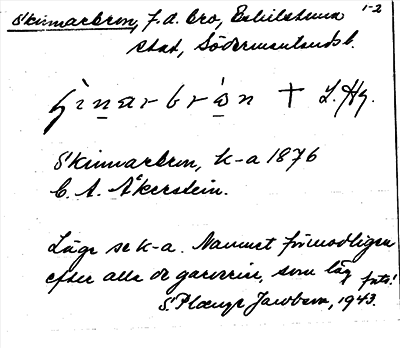 Skinnarbron, f.d. bro, Eskilstuna 1-2
stad, Södermanlands l.
ʃìnarbrón † L. Hg.
Skinnarbron, k-a 1876
C. A. Åkerstein.
Läge se k-a. Namnet förmodligen
efter alla de garverier, som låg
S. Jacobson, 1943.